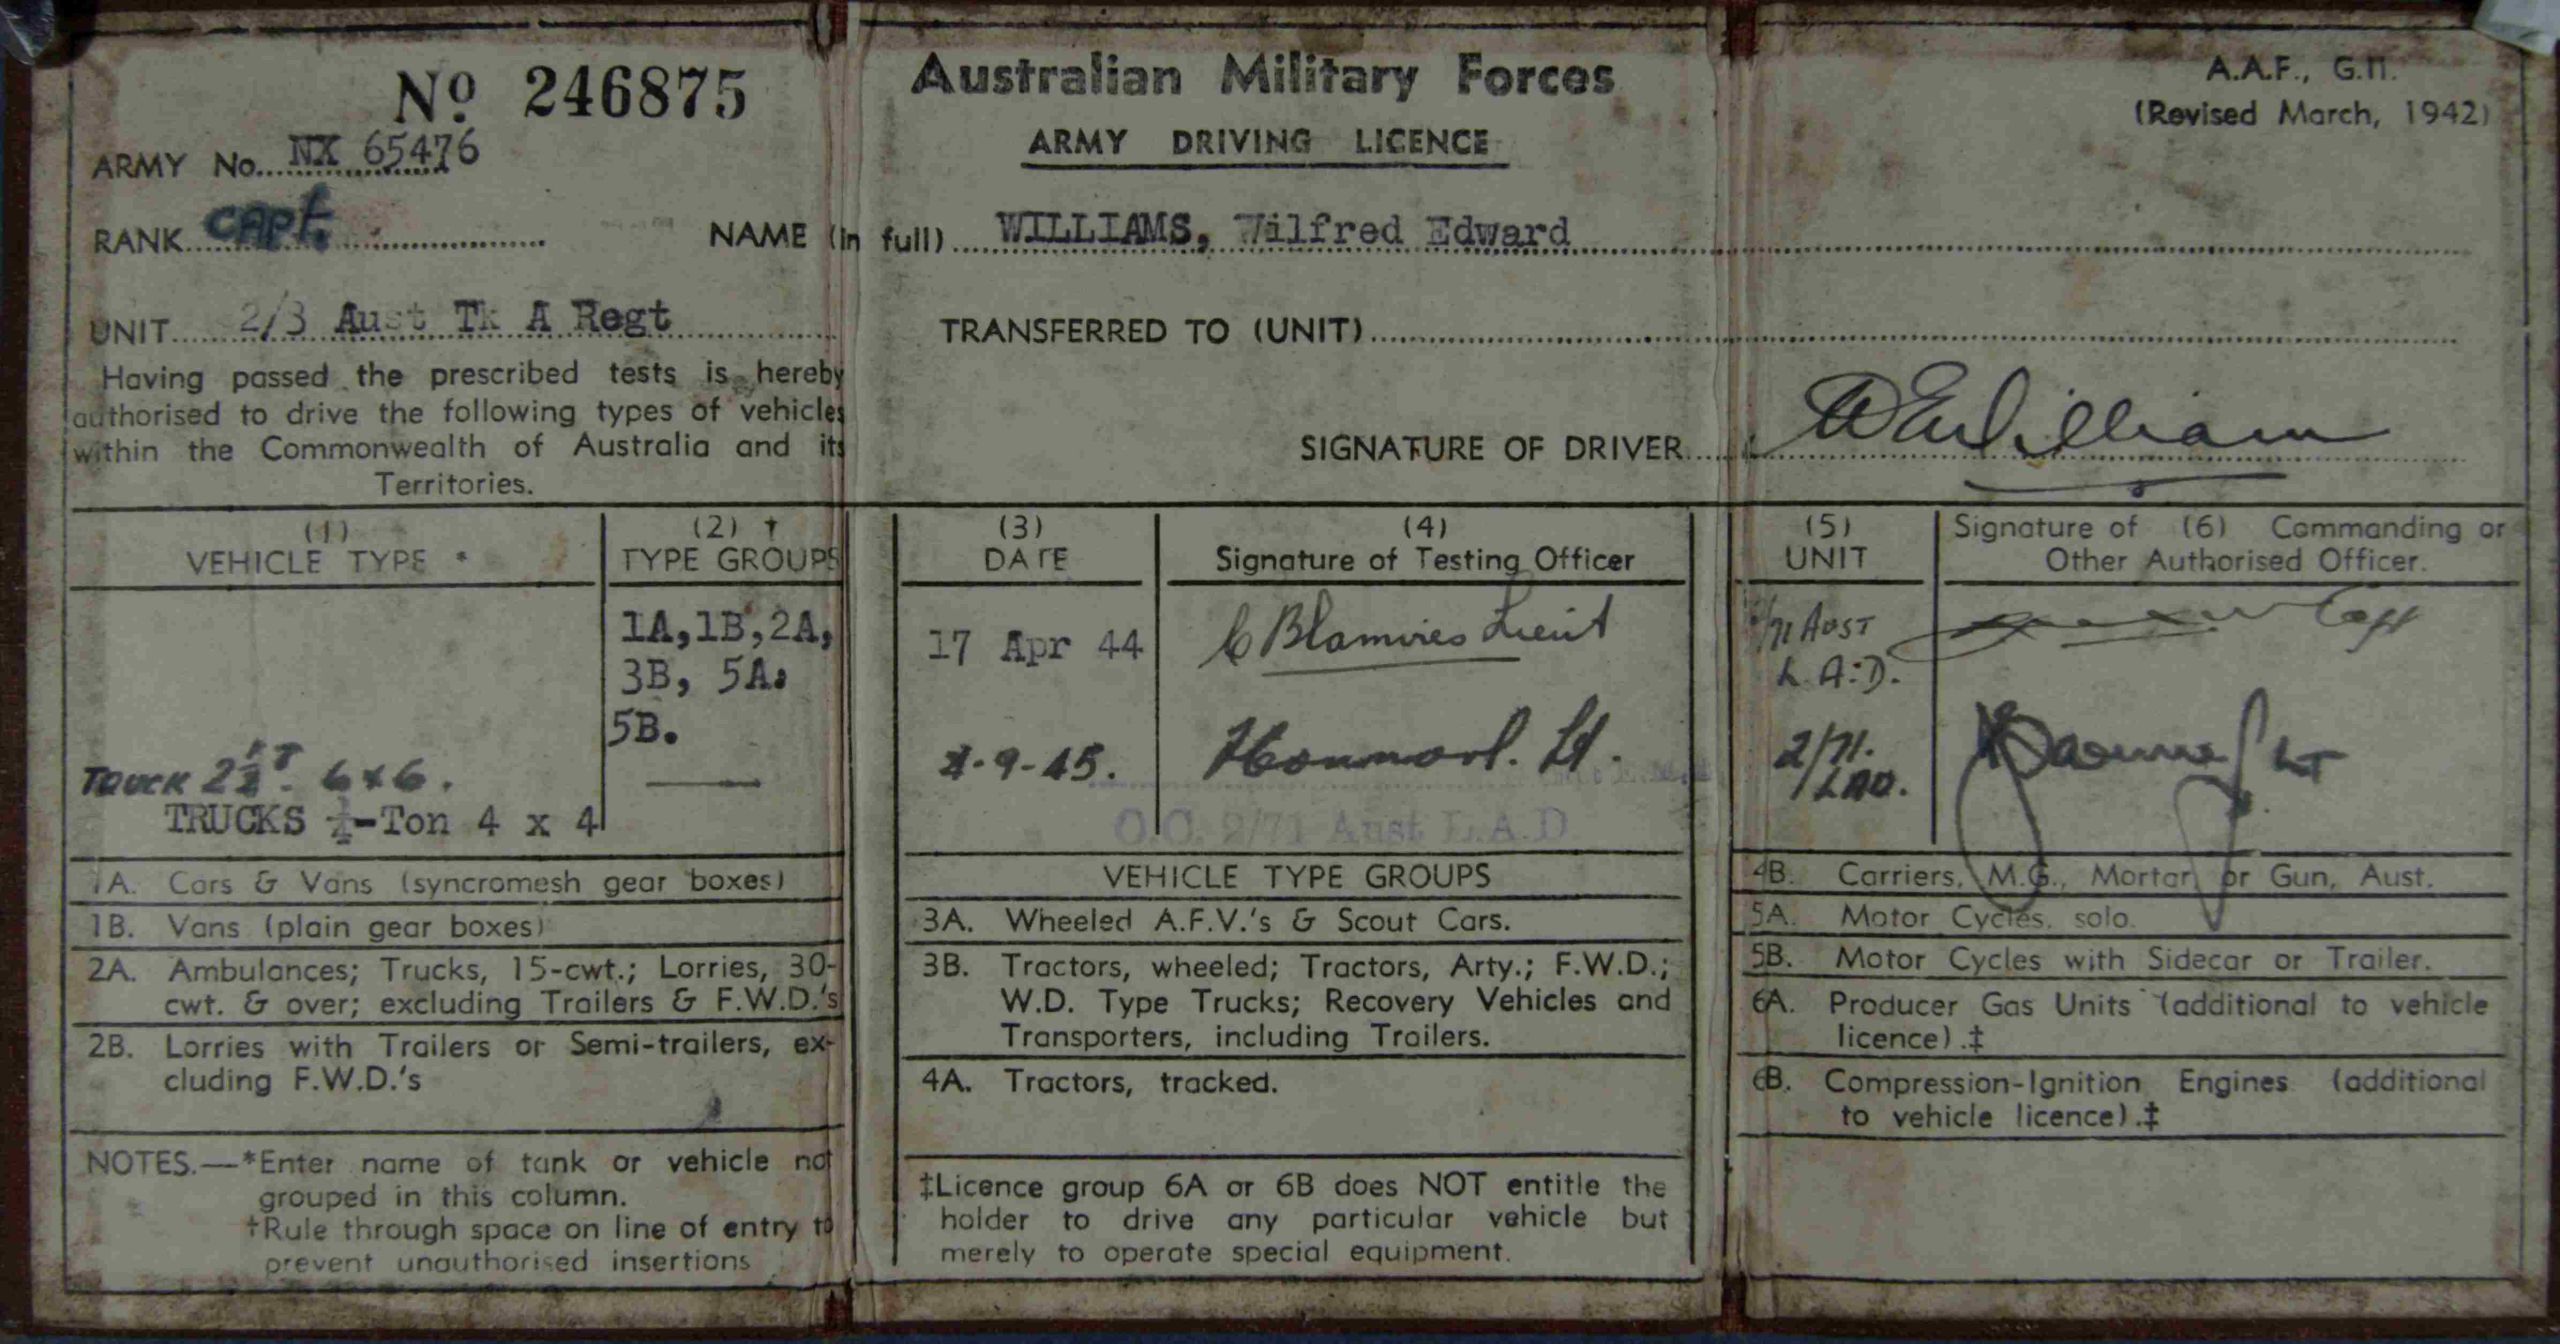 No 246875
Australian Military Forces
A.A.F., G.11.
(Revised March, 1942)
ARMY DRIVING LICENCE
ARMY No. NX 65476
RANK Capt. NAME (in full) WILLIAMS, Wilfred Edward
UNIT 2/3 Aust Tk A Regt TRANSFERRED TO (UNIT)
Having passed the prescribed tests is hereby
authorised to drive the following types of vehicles
within the Commonwealth of Australia and its
Territories.
SIGNATURE OF DRIVER W E Williams
(1)
VEHICLE TYPE *
TRUCK 2½ T. 6x6.
TRUCKS ¼-Ton 4 x 4
(2) †
TYPE GROUPS
1A, 1B, 2A,
3B, 5A,
5B.
(3)
DATE
17 Apr 44
9-45.
(4)
Signature of Testing Officer
C Blamires Lieut
Lt.
O.C. 2/71 Aust L.A.D
(5)
UNIT
2/71 AUST
L.A.D.
2/71.
LAD.
Signature of (6) Commanding or
Other Authorised Officer.
Capt
LT
1A. Cars & Vans (syncromesh gear boxes)
1B. Vans (plain gear boxes)
2A. Ambulances; Trucks, 15-cwt.; Lorries, 30-
cwt. & over; excluding Trailers & F.W.D.'s
2B. Lorries with Trailers or Semi-trailers, ex-
cluding F.W.D.'s
VEHICLE TYPE GROUPS
3A. Wheeled A.F.V.'s & Scout Cars.
3B. Tractors, wheeled; Tractors, Arty.; F.W.D.;
W.D. Type Trucks; Recovery Vehicles and
Transporters, including Trailers.
4A. Tractors, tracked.
4B. Carriers, M.G., Mortar or Gun, Aust.
5A. Motor Cycles, solo.
5B. Motor Cycles with Sidecar or Trailer.
6A. Producer Gas Units (additional to vehicle
licence).‡
6B. Compression-Ignition Engines (additional
to vehicle licence).‡
NOTES.—*Enter name of tank or vehicle not
grouped in this column.
†Rule through space on line of entry to
prevent unauthorised insertions
‡Licence group 6A or 6B does NOT entitle the
holder to drive any particular vehicle but
merely to operate special equipment.